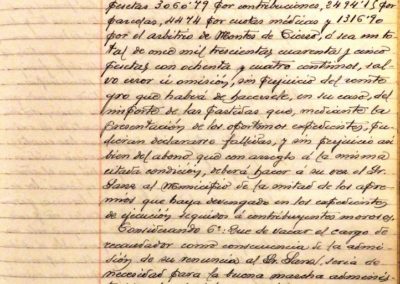 pesetas 3060'79 por contribuciones, 2494'15 por
parcelas, 4474 por cuotas médicas y 1316'90
por el arbitrio de Montes de Cierro, ó sea un to-
tal de once mil trescientas cuarenta y cinco
pesetas con ochenta y cuatro centimos, sal-
vo error ú omisión, sin perjuicio del reinte-
gro que habrá de hacersele, en su caso, del
importe de las partidas que, mediante la
presentación de los oportunos expedientes, pu-
dieran declararse fallidas, y sin perjuicio tam
bien del abono, que con arreglo á la misma
citada condición, deberá hacer á su vez el Sr.
Sanz al Municipio de la mitad de los apre-
mios que haya devengado en los expedientes
de ejecución seguidos á contribuyentes morosos.
Considerando 6º: Que de vacar el cargo de
recaudador como consecuencia de la admi-
sión de su renuncia al Sr. Sanz, sería de
necesidad para la buena marcha adminis-